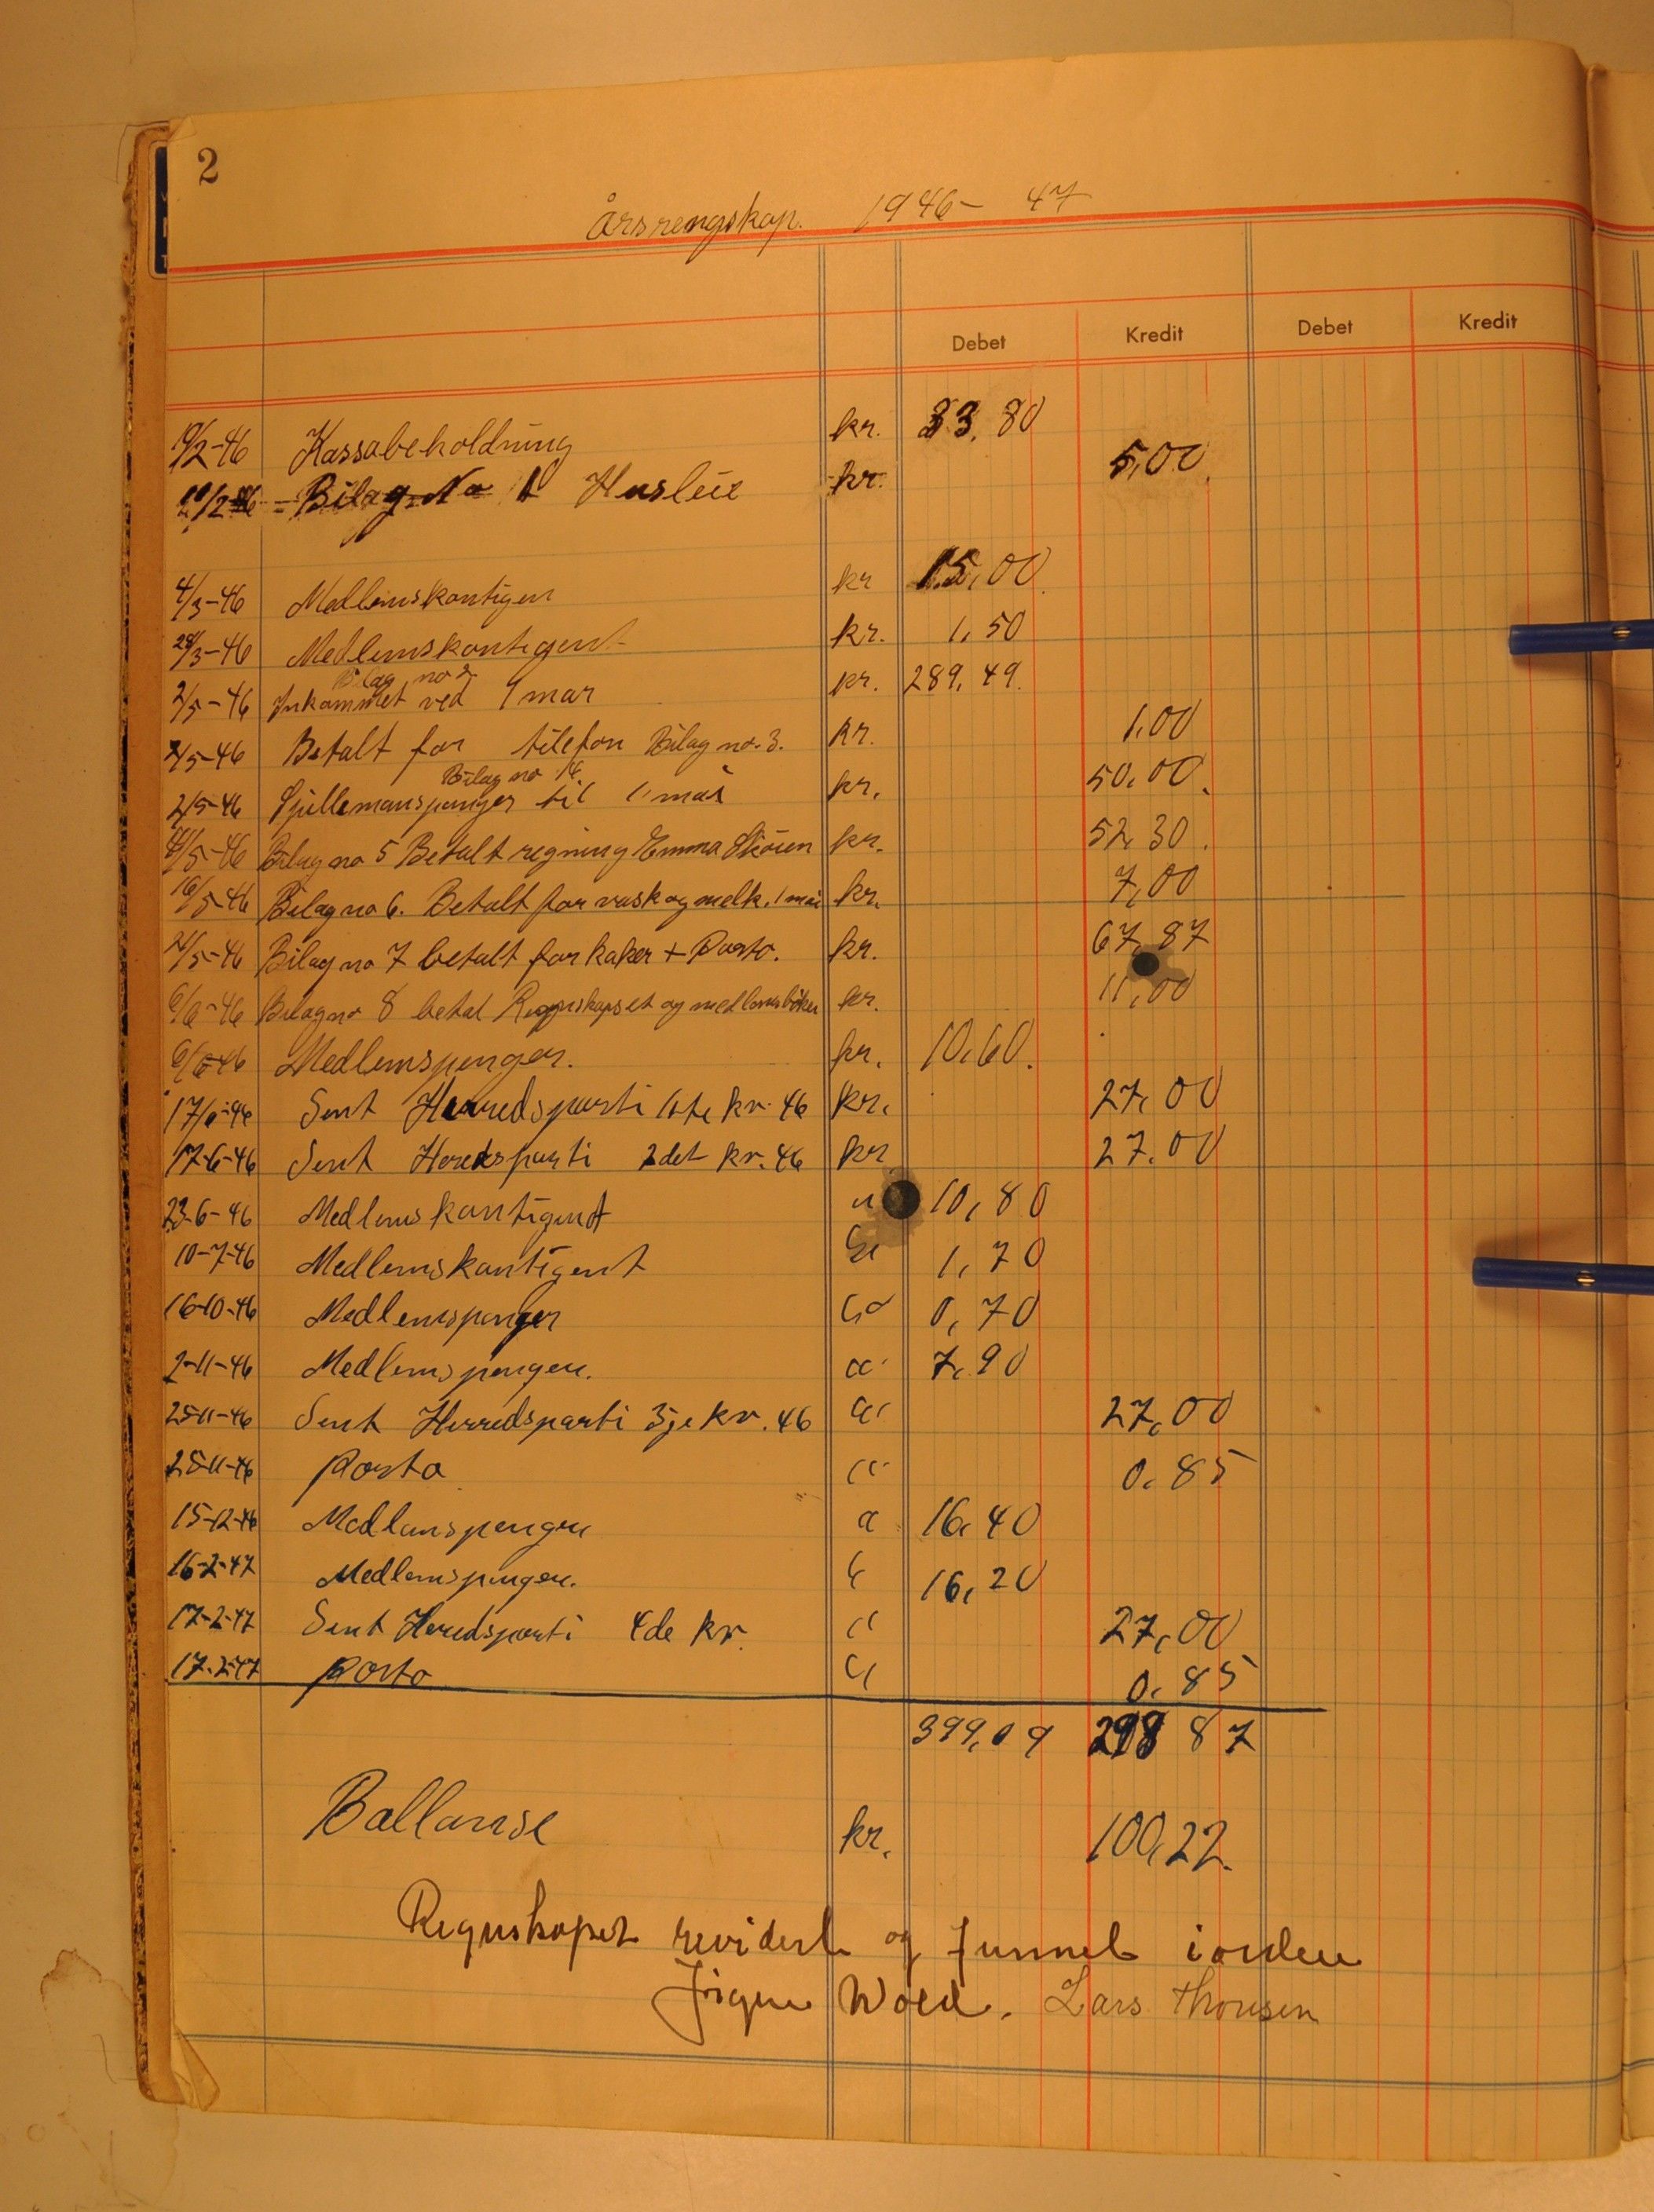 2
Årsrengskap. 1946- 47
Debet Kredit Debet Kredit
19/2-46 Kassabeholdning kr. 33,80
Bilag No 1 Husleie kr. 5,00
4/3-46 Medlemskontigen kr 15,00
29/3-46 Medlemskontigent kr. 1,50
Bilag no 2
2/5-46 Inkommet ved 1 mai kr. 289,49
2/5-46 Betalt for tilefon Bilag no. 3. kr. 1,00
Bilag no 4.
2/5-46 Spillemanspenger til 1 mai kr. 50,00
/5-46 Bilag no 5 Betalt regning Emma Skoien kr. 52,30
16/5-46 Bilag no 6. Betalt for vask og melk. 1 mai kr. 7,00
/5-46 Bilag no 7 betalt for kaker + Porto. kr. 67,87
6/6-46 Bilag no 8 betal Regnskapset og medlemsbøker kr. 11,00
6/6-46 Medlemspenger. kr. 10,60.
17/6-46 Sent Herredsparti 1ste kr. 46 kr. 27,00
17-6-46 Sent Heredsparti 2det kr. 46 kr 27,00
23-6-46 Medlemskontigent " 10,80
10-7-46 Medlemskontigent " 1,70
16-10-46 Medlemspenger " 0,70
2-11-46 Medlemspenger. " 7,90
25-11-46 Sent Herredsparti 3je kr. 46 " 27,00
25-11-46 Porto " 0,85
15-12-46 Medlemspenger " 16,40
16-2-47 Medlemspenger. " 16,20
17-2-47 Sent Heredsparti 4de kr. " 27,00
17-2-47 Porto " 0,85
399,09 298 87
Ballanse kr. 100,22.
Regnskapet revidert og funnet i orden
Wold. Lars Thorsen